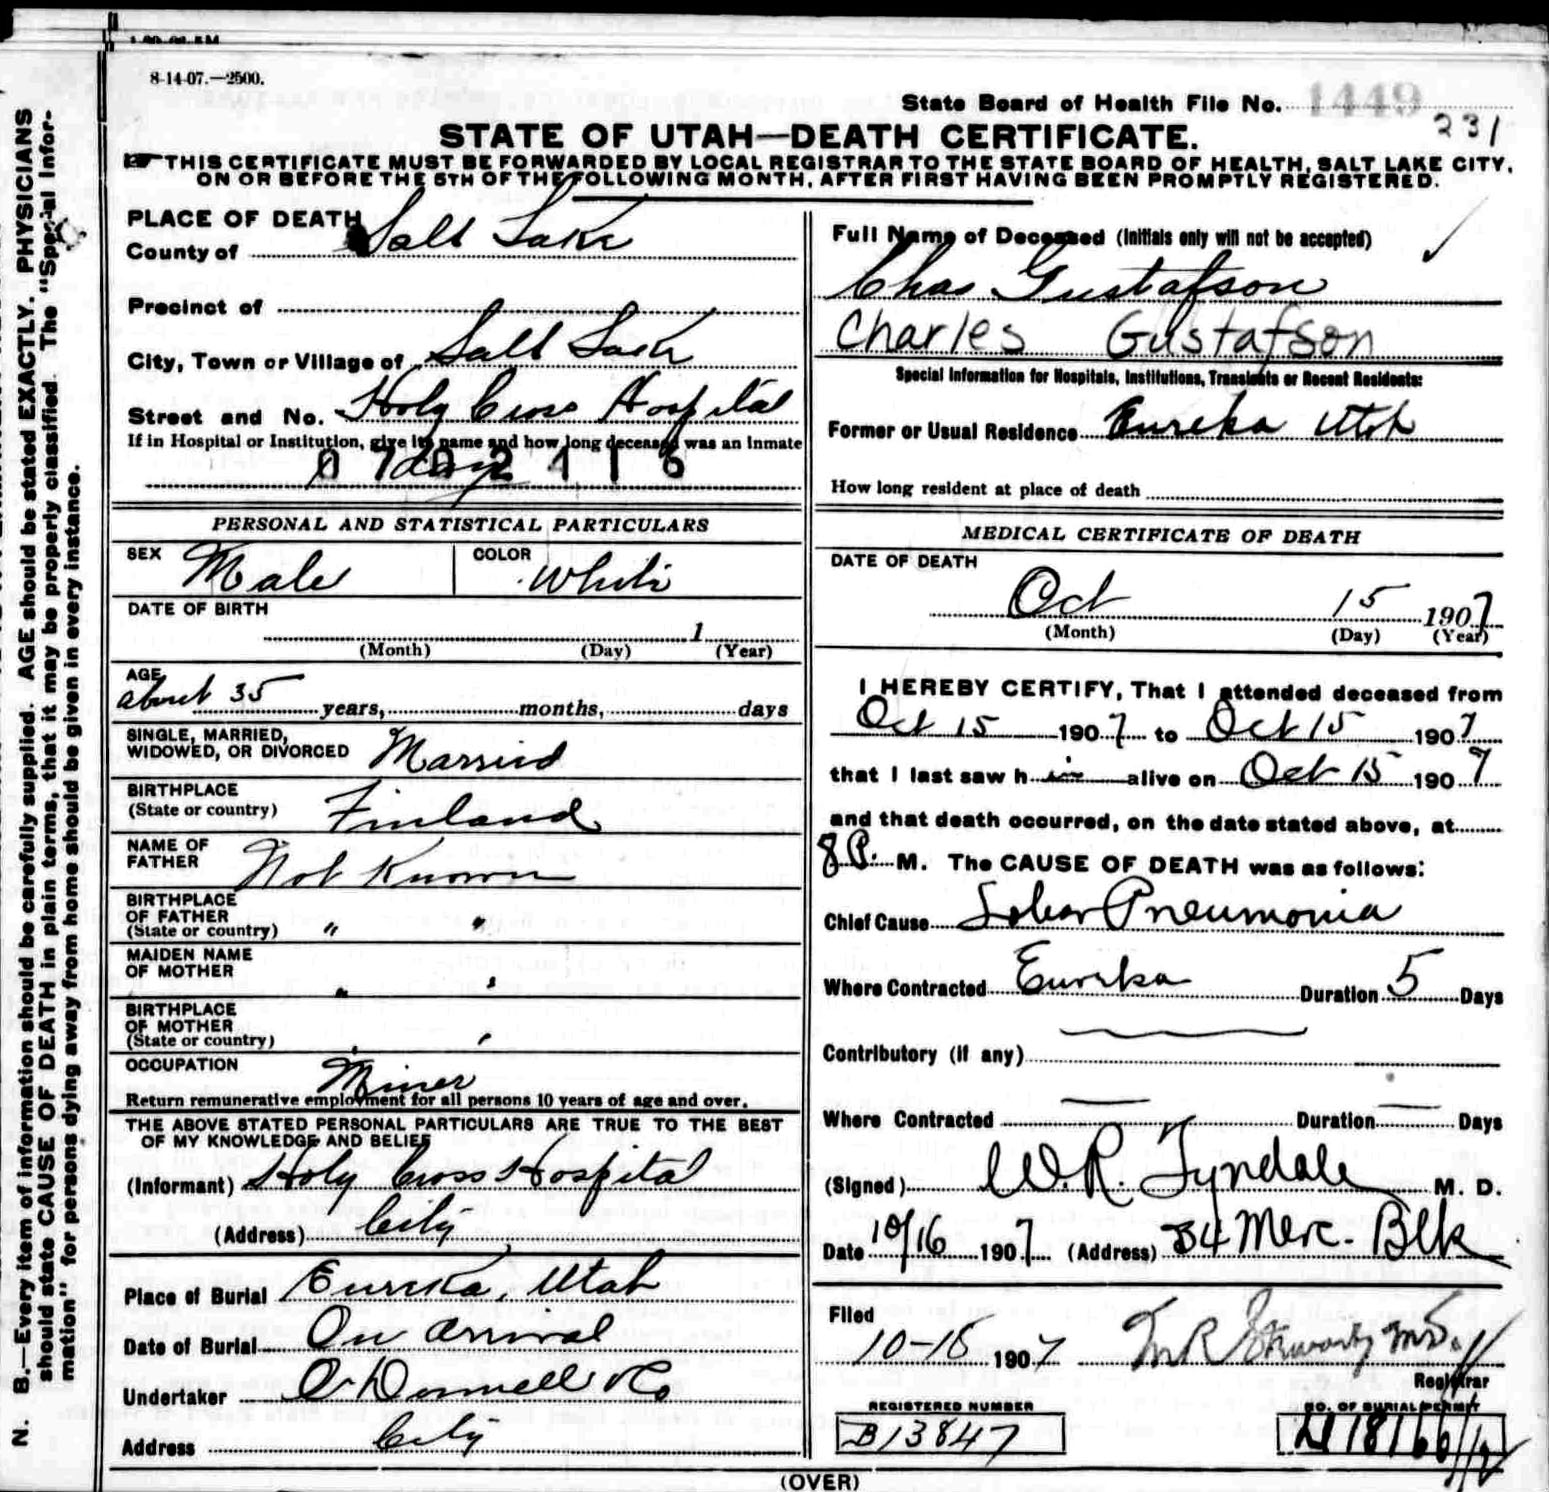 8-14-07.—2500.
State Board of Health File No. 1449
231
STATE OF UTAH—DEATH CERTIFICATE.
THIS CERTIFICATE MUST BE FORWARDED BY LOCAL REGISTRAR TO THE STATE BOARD OF HEALTH, SALT LAKE CITY,
ON OR BEFORE THE 5TH OF THE FOLLOWING MONTH, AFTER FIRST HAVING BEEN PROMPTLY REGISTERED.
N. B.—Every item of information should be carefully supplied. AGE should be stated EXACTLY. PHYSICIANS
should state CAUSE OF DEATH in plain terms, that it may be properly classified. The "Special Infor-
mation" for persons dying away from home should be given in every instance.
PLACE OF DEATH
County of Salt Lake
Precinct of
City, Town or Village of Salt Lake
Street and No. Holy Cross Hospital
If in Hospital or Institution, give its name and how long deceased was an Inmate
1 day
0702416
PERSONAL AND STATISTICAL PARTICULARS
SEX Male COLOR White
DATE OF BIRTH
1
(Month) (Day) (Year)
AGE
about 35 years, months, days
SINGLE, MARRIED,
WIDOWED, OR DIVORCED Married
BIRTHPLACE
(State or country) Finland
NAME OF
FATHER Not Known
BIRTHPLACE
OF FATHER
(State or country) " "
MAIDEN NAME
OF MOTHER " "
BIRTHPLACE
OF MOTHER
(State or country) " "
OCCUPATION Miner
Return remunerative employment for all persons 10 years of age and over.
THE ABOVE STATED PERSONAL PARTICULARS ARE TRUE TO THE BEST
OF MY KNOWLEDGE AND BELIEF
(Informant) Holy Cross Hospital
(Address) City
Place of Burial Eureka, Utah
Date of Burial On arrival
Undertaker O'Donnell & Co
Address City
Full Name of Deceased (Initials only will not be accepted)
Chas Gustafson
Charles Gustafson
Special Information for Hospitals, Institutions, Transients or Recent Residents:
Former or Usual Residence Eureka Utah
How long resident at place of death
MEDICAL CERTIFICATE OF DEATH
DATE OF DEATH
Oct 15 1907
(Month) (Day) (Year)
I HEREBY CERTIFY, That I attended deceased from
Oct 15 1907 to Oct 15 1907
that I last saw him alive on Oct 15 1907
and that death occurred, on the date stated above, at
8 P. M. The CAUSE OF DEATH was as follows:
Chief Cause Lobar Pneumonia
Where Contracted Eureka Duration 5 Days
Contributory (if any)
Where Contracted Duration Days
(Signed) W. R. Tyndale M. D.
Date 10/16 1907 (Address) 34 Merc. Blk
Filed
10-16 1907
Registrar
REGISTERED NUMBER
B13847
NO. OF BURIAL PERMIT
(OVER)